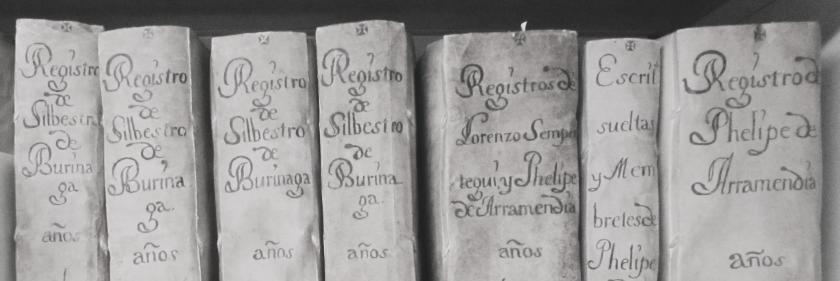 Registro
de
Silbestro
de
Burina
ga
años
Registro
de
Silbestro
de
Burina
ga.
años
Registro
de
Silbestro
de
Burinaga
años
Registro
de
Silbestro
de
Burina
ga.
años
Registros de
Lorenzo Sempe
tegui y Phelipe
de Arramendia
años
Escrit
sueltas
y Mem
breles de
Phelipe
Registro d
Phelipe de
Arramendia
años